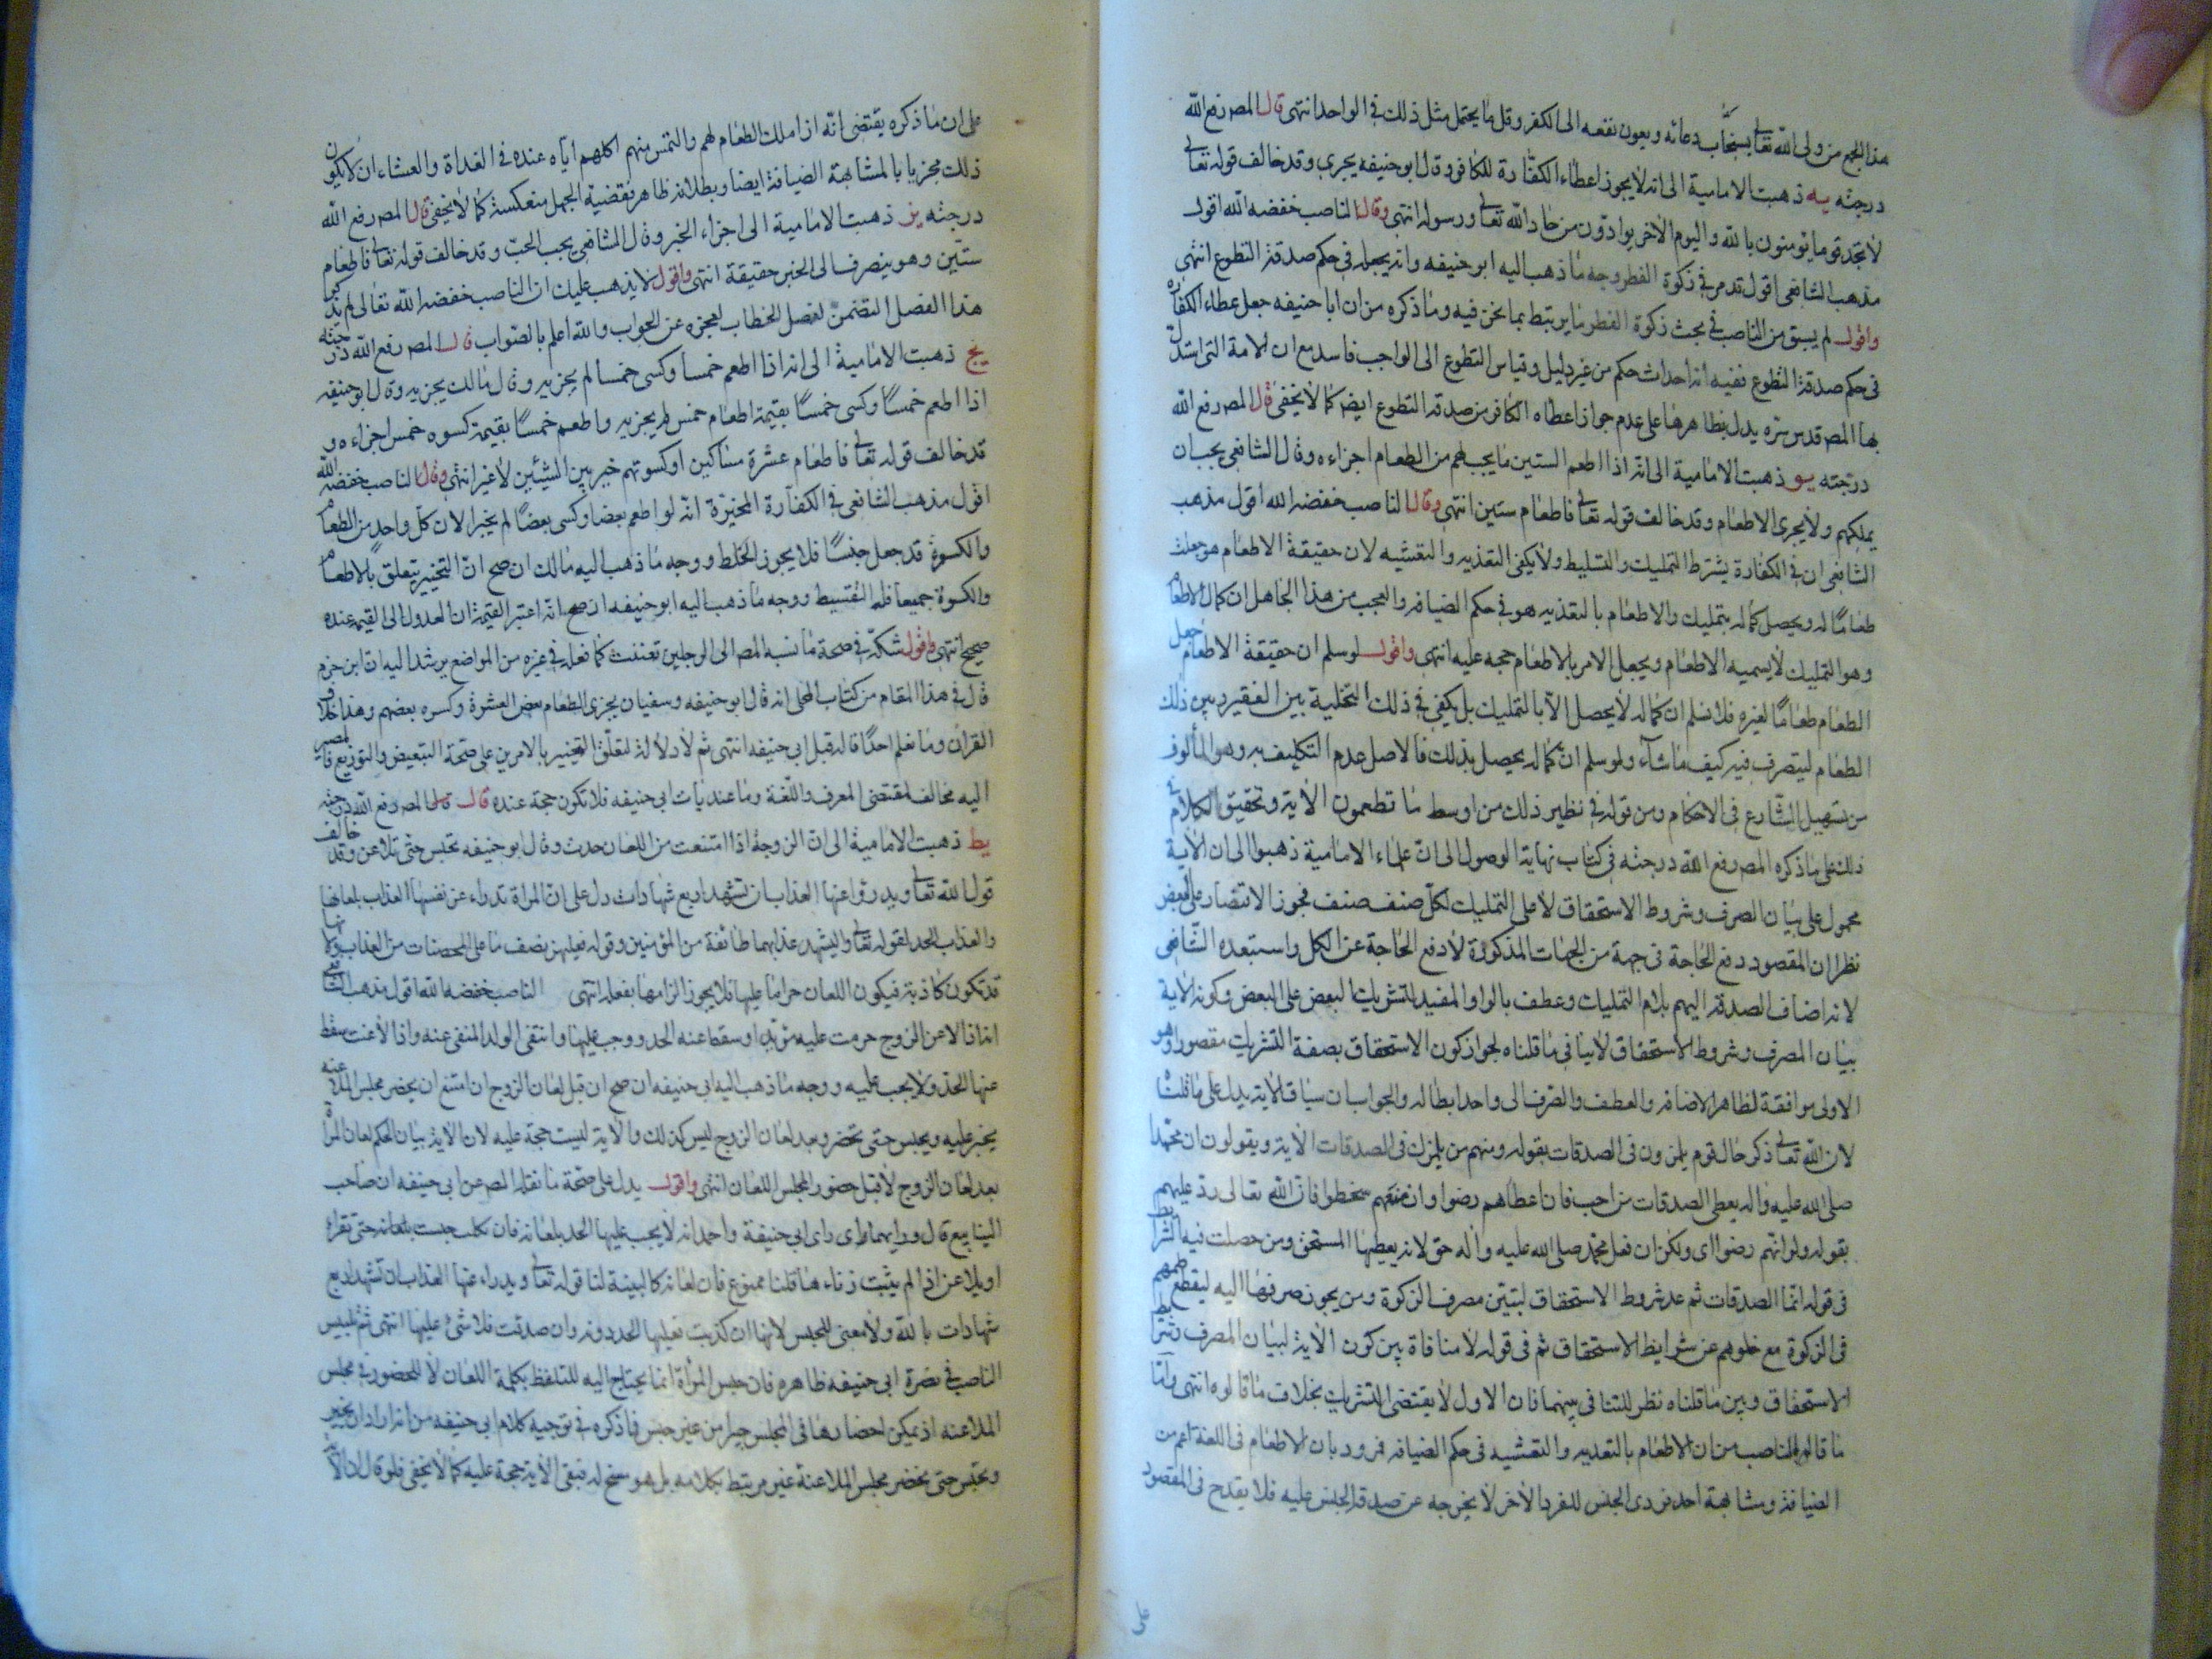 هذا الجمع من ولى الله تعالى يستجاب دعائه ويعون نفعه الى الكفر وقل ما يحتمل مثل ذلك في الواحد انتهى قال المصر رفع الله
درجته يه ذهبت الامامية الى انه لا يجوز اعطاء الكفارة للكافر وقال ابو حنيفه يجرى وقد خالف قوله تعالى
لا تجد قوما يؤمنون بالله واليوم الاخر يوادون من حاد الله تعالى ورسوله انتهى وقال الناصب خفضه الله اقول
مذهب الشافعى اقول قد مر في زكوة الفطر وجه ما ذهب اليه ابو حنيفه وانه يجعله في حكم صدقة التطوع انتهى
واقول لم يسبق من الناصب في بحث زكوة الفطر ما يرتبط بما نحن فيه وما ذكره من ان ابا حنيفه جعل عطاء الكفاره
في حكم صدقة التطوع ففيه انه احداث حكم من غير دليل وقياس التطوع الى الواجب فاسد مع ان الامة التى استدل
بها المصر قدس سره يدل بظاهرها على عدم جواز اعطاه الكافر من صدقة التطوع ايضه كما لا يخفى قال المصر رفع الله
درجته يو ذهبت الامامية الى انه اذا اطعم الستين ما يجب لهم من الطعام اجزاءه وقال الشافعى يجب ان
يملكهم ولا يجرى الاطعام وقد خالف قوله تعالى فاطعام ستين انتهى وقال الناصب خفضه الله اقول مذهب
الشافعى ان في الكفارة يشترط التمليك والتسليط ولا يكفى التغذيه والتعشيه لان حقيقة الاطعام هو جعلك
طعاما له ويحصل كماله بتمليك والاطعام بالتغذيه هو في حكم الضيافه والعجب من هذا الجاهل ان كمال الاطعام
وهو التمليك لا يسميه الاطعام ويجعل الامر بالاطعام حجه عليه انتهى واقول لو سلم ان حقيقة الاطعام جعل
الطعام طعاما لغيره فلا نسلم ان كماله لا يحصل الا بالتمليك بل يكفى في ذلك التخلية بين الفقير وبين ذلك
الطعام ليتصرف فيه كيف ما شاء ولو سلم ان كماله يحصل بذلك فالاصل عدم التكليف به وهو المألوف
من تسهيل الشارع فى الاحكام ومن قوله في نظير ذلك من اوسط ما تطعمون الاية وتحقيق الكلام في
ذلك على ما ذكره المصر رفع الله درجته في كتاب نهاية الوصول الى ان علماء الامامية ذهبوا الى ان الاية
محمول على بيان المصرف وشروط الاستحقاق لا على التمليك لكل صنف صنف فجوز الاقتصار على البعض
نظرا ان المقصود دفع الحاجة فى جهة من الجهات المذكورة لا دفع الحاجة عن الكل واستبعده الشافعى
لانه اضاف الصدقة اليهم بلام التمليك وعطف بالواو المفيد للتشريك البعض على البعض وكونه لاية
بيان المصرف وشروط الاستحقاق لا ينافى ما قلناه لجواز كون الاستحقاق بصفة التشريك مقصورا وهو
الاولى موافقة لظاهر الاضافه والعطف والصرف الى واحد ابطال له والجواب ان سياق الاية يدل على ما قلناه
لان الله تعالى ذكر حال قوم يلمزون فى الصدقات بقوله ومنهم من يلمزك فى الصدقات الاية ويقولون ان محمدا
صلى الله عليه واله يعطى الصدقات من احب فان اعطاهم رضوا وان منعهم سخطوا فان الله تعالى رد عليهم
بقوله ولو انهم رضوا اى ولكن ان فعل محمد صلى الله عليه واله حق لانه يعطيها المستحق ومن حصلت فيه الشرايط
فى قوله انما الصدقات ثم عد شروط الاستحقاق ليتبين مصرف الزكوة ومن يجوز صرفها اليه ليقطع طمعهم
فى الزكوة مع خلوهم عن شرايط الاستحقاق ثم فى قوله لا منافاة بين كون الاية لبيان المصرف وشرايط
الاستحقاق وبين ما قلناه نظر للتنافى بينهما فان الاول لا يقتضى التشريك بخلاف ما قالوه انتهى واما
ما قاله الناصب من ان الاطعام بالتغديه والتعشيه فى حكم الضيافه فمردود بان الاطعام فى اللغة اعم من
الضيافة ومشابهة احد فردى الجنس للفرد الاخر لا يخرجه عن صدق الجنس عليه فلا يقدح فى المقصود
على
على ان ما ذكره يقتضى انه اذا ملك الطعام لهم والتمس منهم اكلهم اياه عنده في الغداة والعشاء ان لا يكون
ذلك مجزيا بالمشابهة الضيافة ايضا وبطلانه ظاهر فقضية الجهل منعكسة كما لا يخفى قال المصر رفع الله
درجته يز ذهبت الامامية الى اجزاء الخبز وقال الشافعى يجب الحب وقد خالف قوله تعالى فاطعام
ستين وهو ينصرف الى الخبز حقيقة انتهى واقول لا يذهب عليك ان الناصب خفضه الله تعالى لم يذكر
هذا الفصل المتضمن لفصل الخطاب لعجزه عن الجواب والله اعلم بالصواب قال المصر رفع الله درجته
يح ذهبت الامامية الى انه اذا اطعم خمسا وكسى خمسا لم يجزيه وقال مالك يجزيه وقال ابو حنيفه
اذا اطعم خمسا وكسى خمسا بقيمة اطعام خمس لم يجزيه واطعم خمسا بقيمة كسوه خمس اجزاءه و
قد خالف قوله تعالى فاطعام عشرة مساكين او كسوتهم خير بين الشيئين لا غير انتهى وقال الناصب خفضه الله
اقول مذهب الشافعى في الكفارة المخيرة انه لو اطعم بعضا وكسى بعضا لم يجز الان كل واحد من الطعام
والكسوة قد جعل جنسا فلا يجوز الخلط ووجه ما ذهب اليه مالك ان صح ان التخيير يتعلق بالاطعام
والكسوة جميعا فله التقسيط ووجه ما ذهب اليه ابو حنيفه ان صح انه اعتبر القيمة ان العدول الى القيمه عنده
صحيح انتهى واقول شكه في صحة ما نسبه المصر الى الرجلين تعنت كما فعله في غيره من المواضع يرشد اليه ان ابن حزم
قال في هذا المقام من كتاب المحلى انه قال ابو حنيفه وسفيان يجزى الطعام بعض العشرة وكسوه بعضهم وهذا خلاف
القران وما نعلم احدا قاله قبل ابى حنيفه انتهى ثم لا دلالة لتعلق التخيير بالامرين على صحة التبعيض والتوزيع فالمصير
اليه مخالف لمقتضى العرف واللغة وما عنديات ابى حنيفه فلا تكون حجة عنده قال المصر رفع الله درجته
يط ذهبت الامامية الى ان الزوجة اذا امتنعت من اللعان حدث وقال ابو حنيفه تحبس حتى تلاعن وقد خالف
قول الله تعالى ويدرؤا عنها العذاب ان تشهد اربع شهادات دل على ان المراة تدراء عن نفسها العذاب بلعانها
والعذاب الحد لقوله تعالى وليشهد عذابهما طائفة من المؤمنين وقوله فعليهن نصف ما على المحصنات من العذاب ولانها
قد تكون كاذبة فيكون اللعان حراما عليها فلا يجوز الزامها بفعله انتهى الناصب خفضه الله اقول مذهب الشافعى
انه اذا لاعن الزوج حرمت عليه مؤبدا وسقط عنه الحد ووجب عليها وانتفى الولد المنفى عنه واذا لاعنت سقط
عنها الحد ولا يجب عليه ووجه ما ذهب اليه ابى حنيفه ان صح ان قبل لعان الزوج ان امتنع ان يحضر مجلس الملاعنه
يجبر عليه ويحبس حتى تحضر وبعد لعان الزوج ليس كذلك والاية ليست حجة عليه لان الاية بيان الحكم لعان المراة
بعد لعان الزوج لا قبل حضور المجلس اللعان انتهى واقول يدل على صحة ما نقله المصر عن ابى حنيفه ان صاحب
الينابيع قال ورايهما راى ابى حنيفة واحد انه لا يجب عليها الحد بلعانه فان نكلت حبست بلعانه حتى تقراء
او يلاعن اذا لم يثبت زناءها قلنا ممنوع فان لعانه كالبينة لنا قوله تعالى ويدراء عنها العذاب ان تشهد اربع
شهادات بالله ولا معنى للحبس لانها ان كذبت فعليها الحد دونه وان صدقت فلا شئ عليها انتهى ثم تلبيس
الناصب في نصرة ابى حنيفه ظاهره فان حبس المرأة انما يحتاج اليه للتلفظ بكلمة اللعان لا للحضور في مجلس
الملاعنه اذ يمكن احضارها فى المجلس جبرا من غير حبس فما ذكره في توجيه كلام ابى حنيفه من انه اراد ان يجبر
وتحبس حتى تحضر مجلس الملاعنة غير مرتبط بكلامه بل هو سنح له فتبقى الاية حجة عليه كما لا يخفى فلو قال